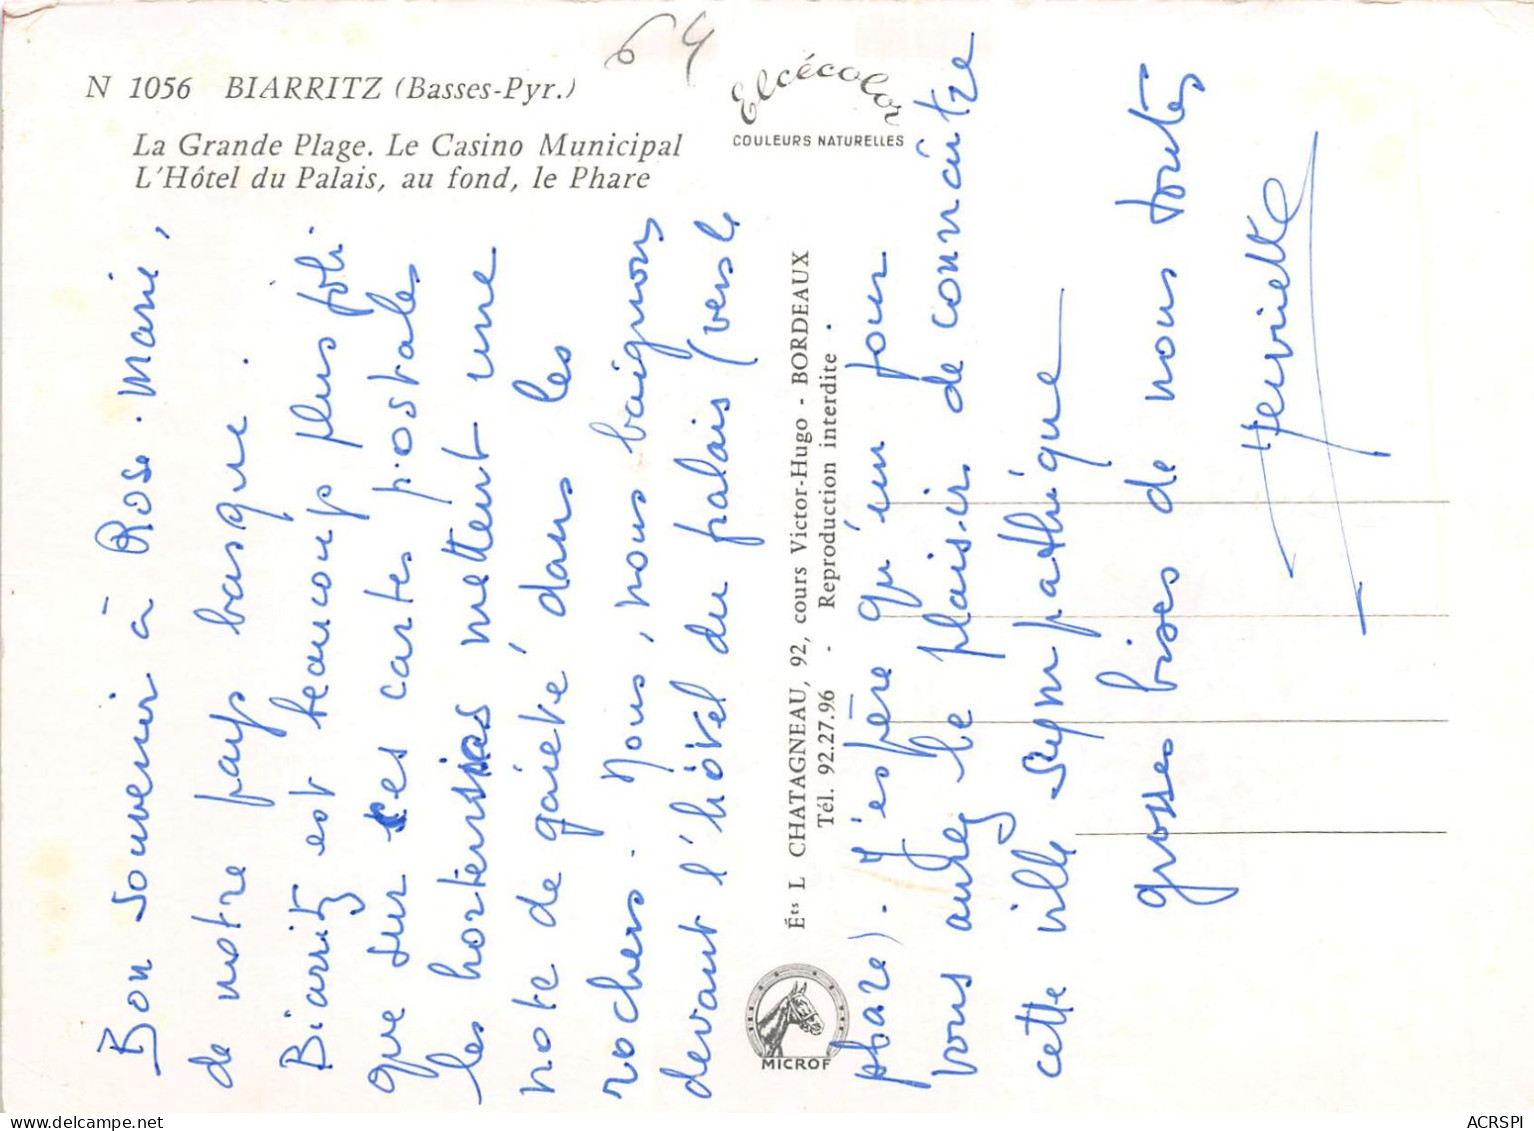 64
N 1056 BIARRITZ (Basses-Pyr.)
La Grande Plage. Le Casino Municipal
L'Hôtel du Palais, au fond, le Phare
Elcécolor
COULEURS NATURELLES
Éts L CHATAGNEAU, 92, cours Victor-Hugo - BORDEAUX
Tél. 92.27.96 - Reproduction interdite
MICROF
Bon souvenir à Rose-Marie,
de notre pays basque.
Biarritz est beaucoup plus joli
que sur ces cartes postales
les hortensias mettent une
note de gaieté dans les
rochers. Nous, nous baignons
devant l'hôtel du palais (vers le
phare). J'espère qu'un jour
vous aurez le plaisir de connaitre
cette ville sympathique
grosses bises de nous toutes
Henriette
ACRSPI